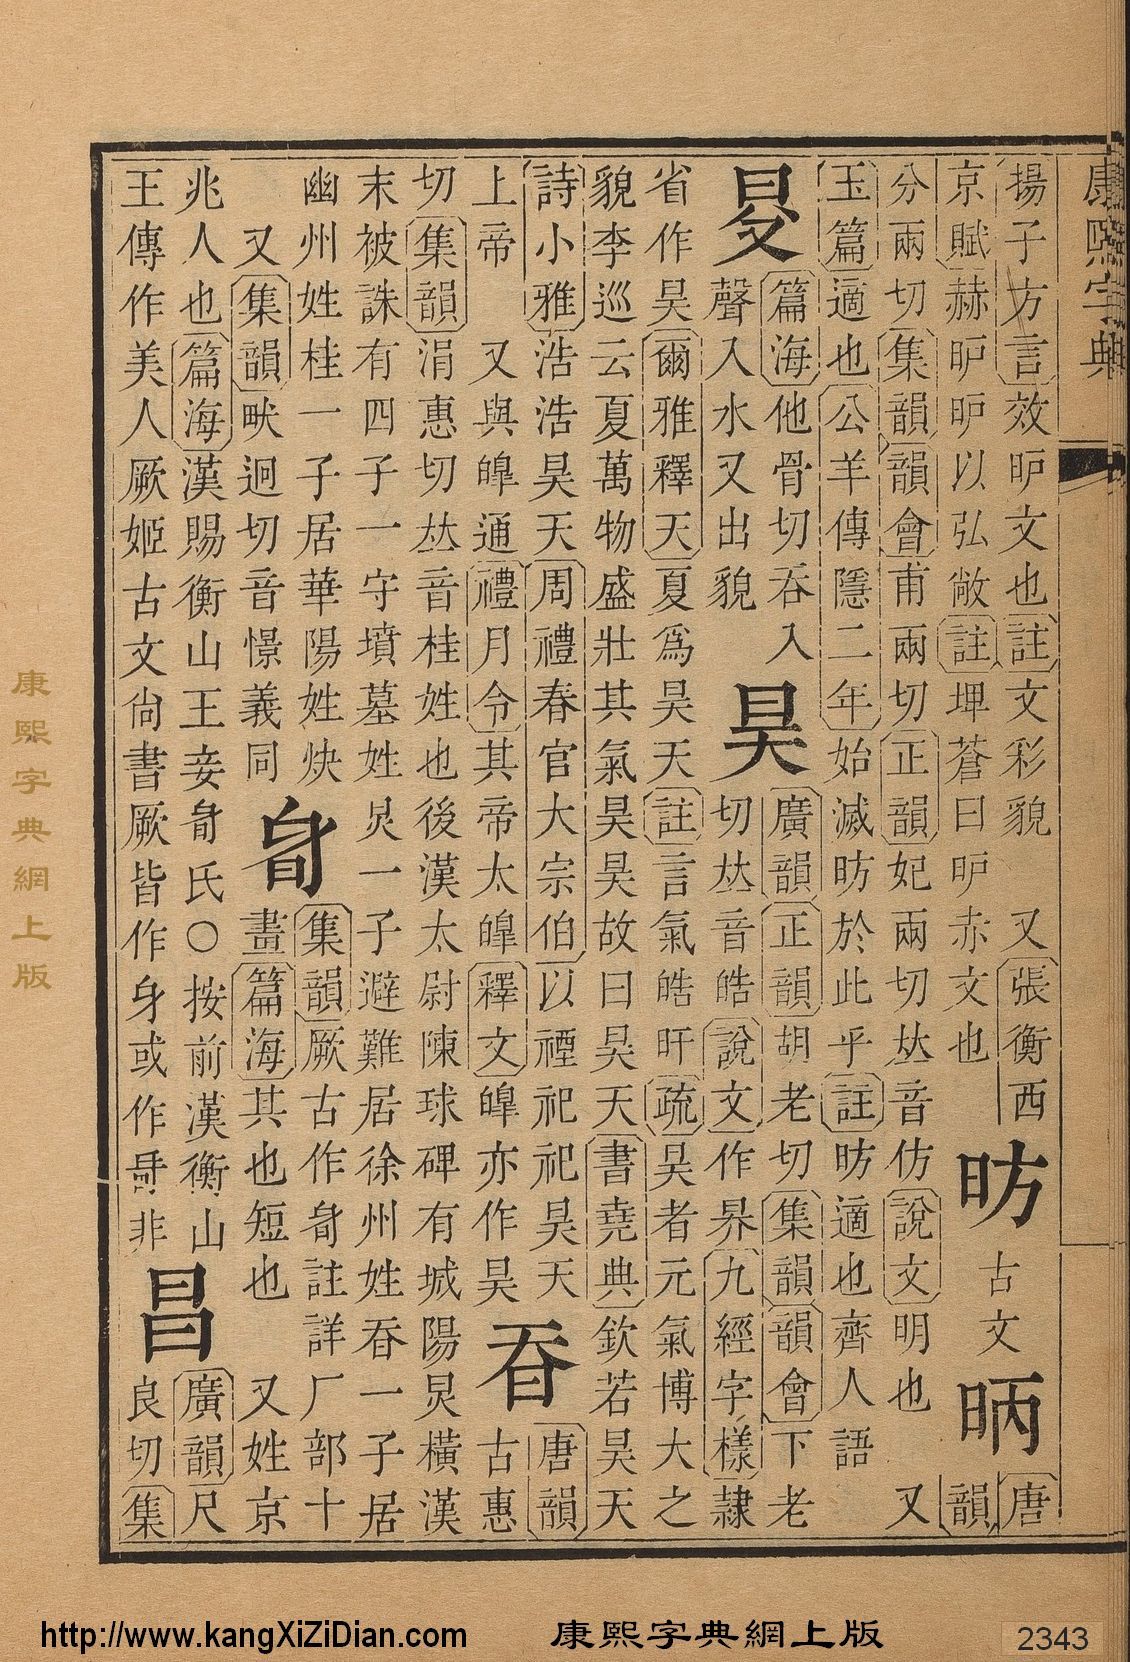 康熙字典
揚子方言效昈文也註文彩貌 又張衡西
京賦赫昈昈以弘敞註埤蒼曰昈赤文也
昉
古文
昞
唐
韻
分兩切集韻韻會甫兩切正韻妃兩切𠀤音仿說文明也 又
玉篇適也公羊傳隱二年始滅昉於此乎註昉適也齊人語
篇海他骨切吞入
聲入水又出貌
昊
廣韻正韻胡老切集韻韻會下老
切𠀤音皓說文作昦九經字樣隸
省作昊爾雅釋天夏爲昊天註言氣皓旰疏昊者元氣博大之
貌李巡云夏萬物盛壯其氣昊昊故曰昊天書堯典欽若昊天
詩小雅浩浩昊天周禮春官大宗伯以禋祀祀昊天
上帝 又與皞通禮月令其帝太皞釋文皞亦作昊
昋
唐韻
古惠
切集韻涓惠切𠀤音桂姓也後漢太尉陳球碑有城陽炅橫漢
末被誅有四子一守墳墓姓炅一子避難居徐州姓昋一子居
幽州姓桂一子居華陽姓炔
又集韻畎迥切音憬義同
集韻厥古作註詳厂部十
畫篇海其也短也 又姓京
兆人也篇海漢賜衡山王妾氏○按前漢衡山
王傳作美人厥姬古文尙書厥皆作身或作非
昌
廣韻尺
良切集
康熙字典網上版
http://www.kangXiZiDian.com
康熙字典網上版
2343